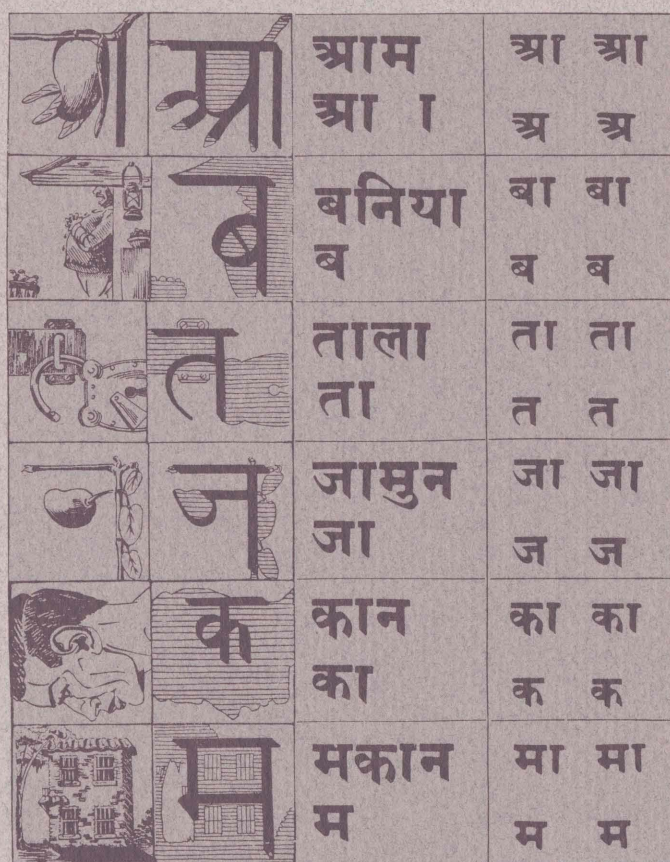 आ
आम
आ ा
आ आ
अ अ
ब
बनिया
ब
बा बा
ब ब
त
ताला
ता
ता ता
त त
ज
जामुन
जा
जा जा
ज ज
क
कान
का
का का
क क
म
मकान
म
मा मा
म म